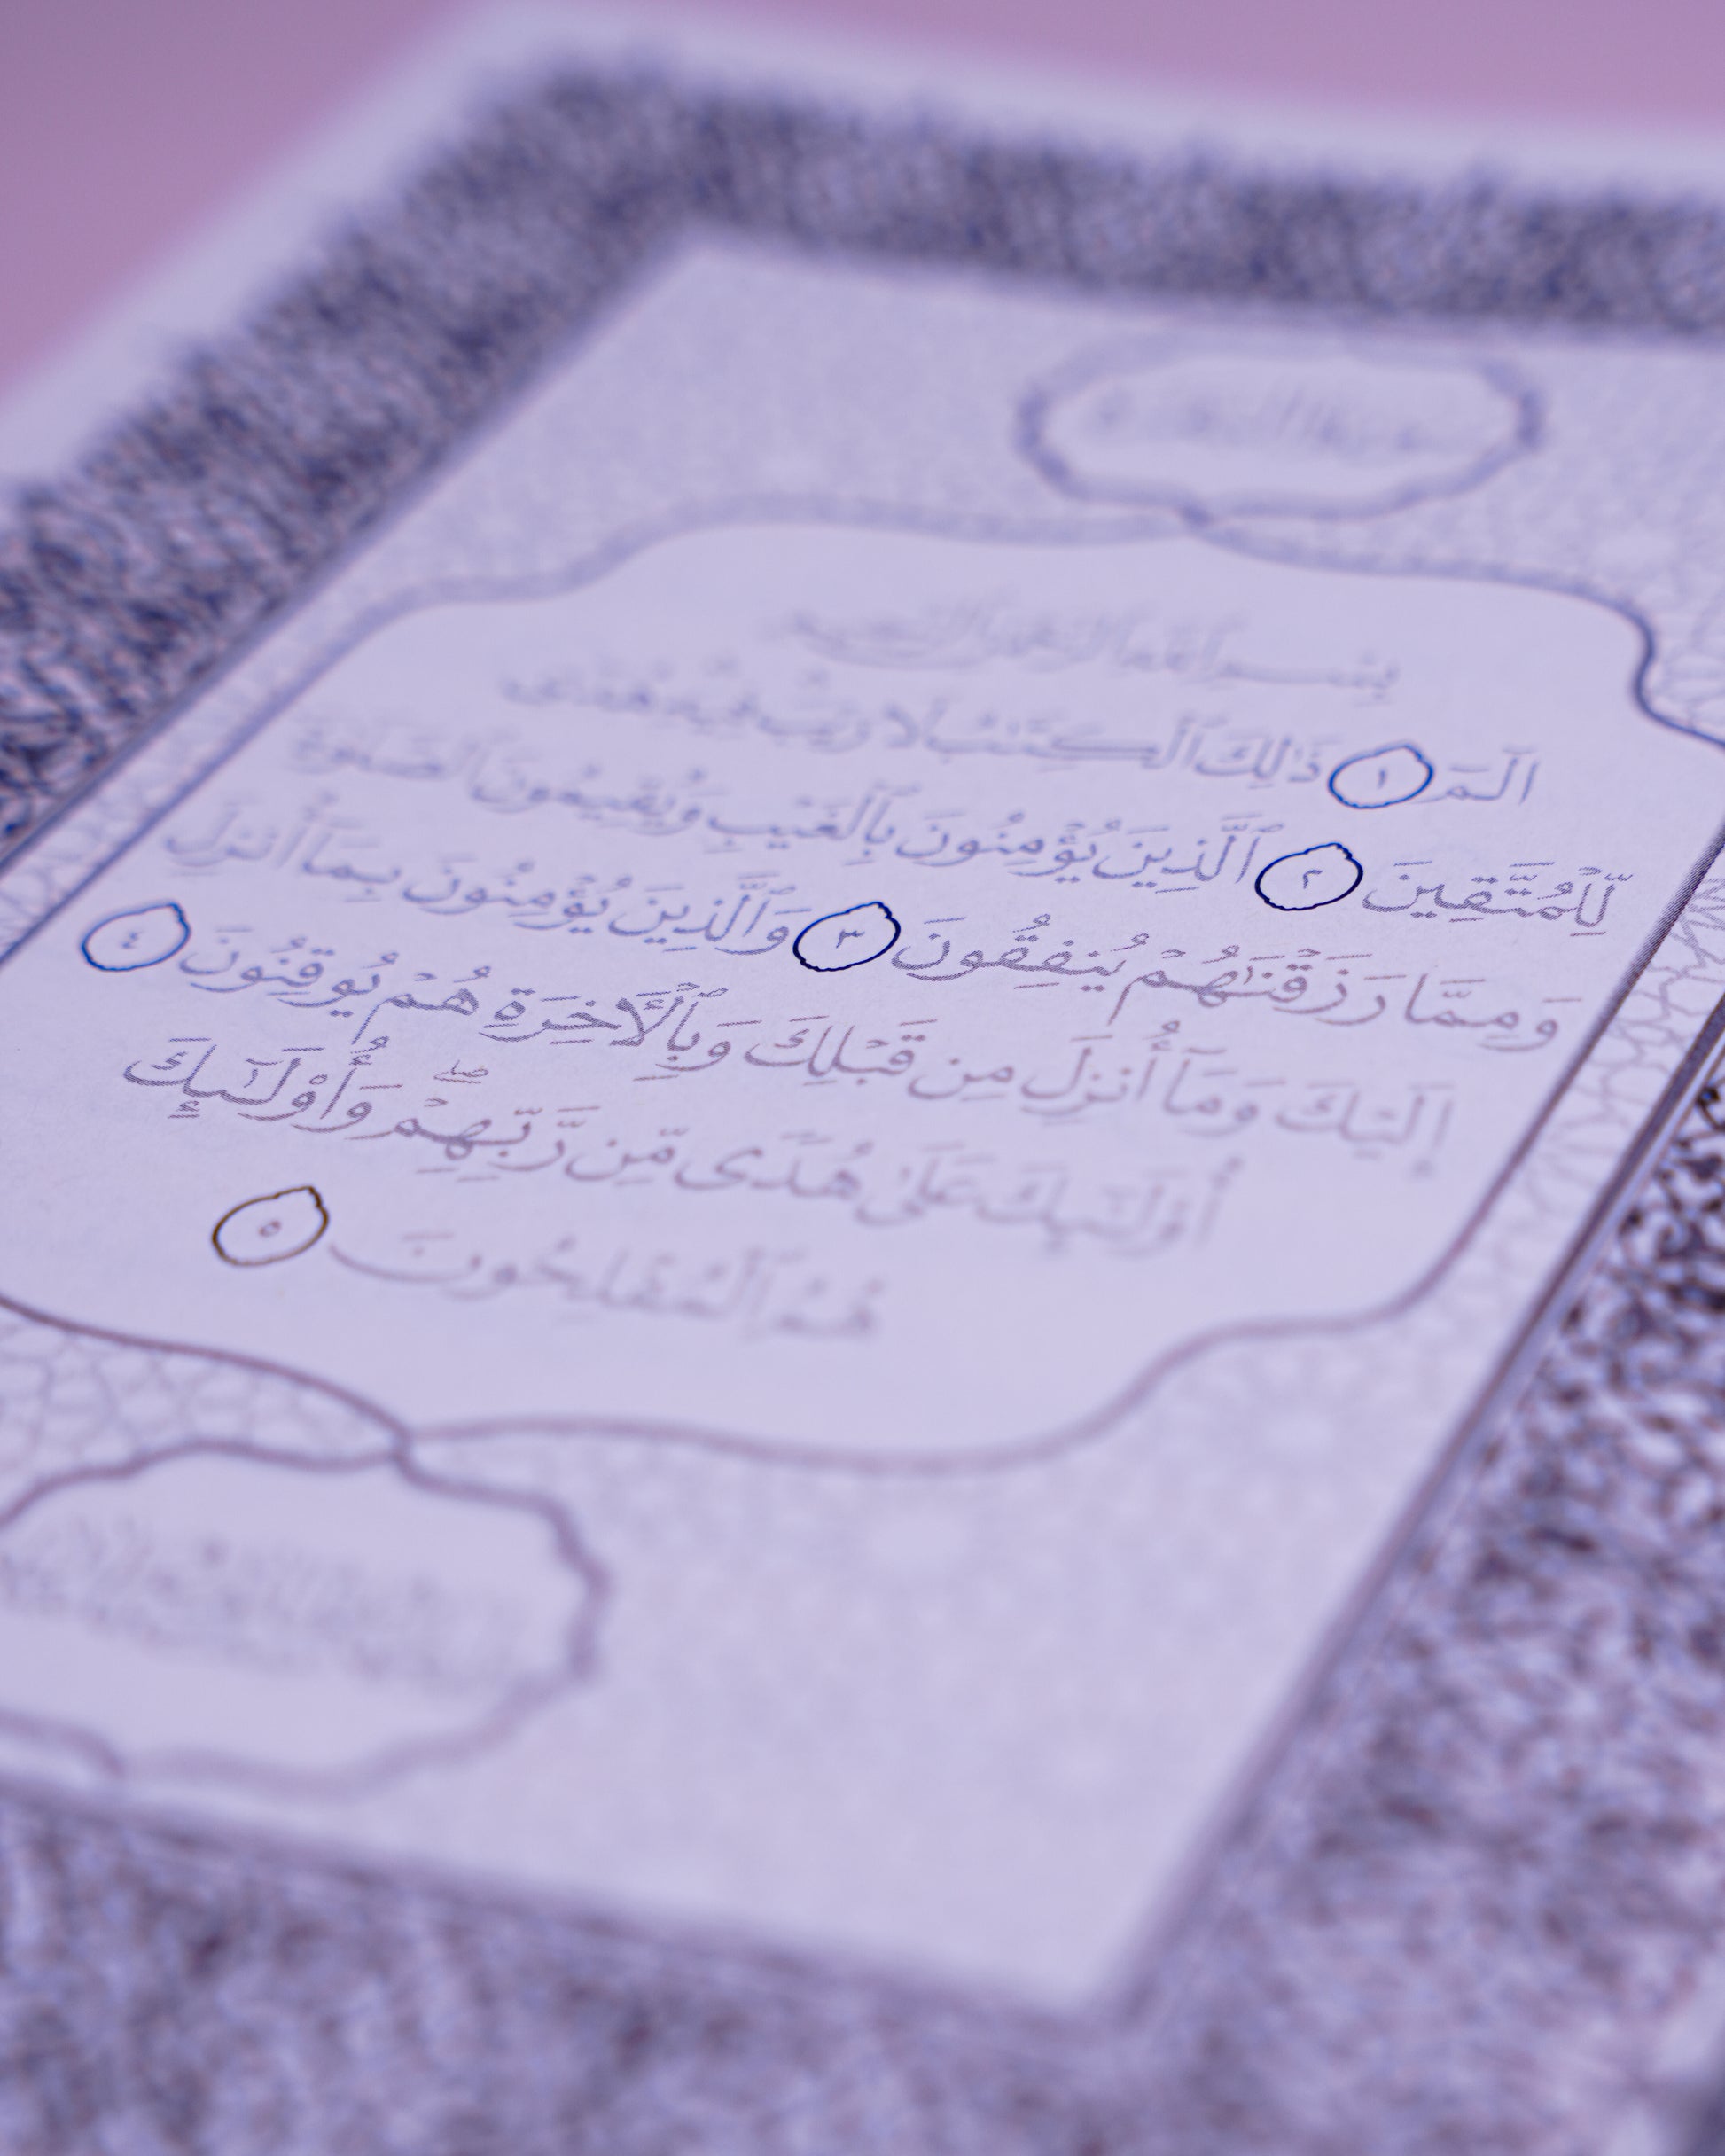 سورة البقرة
بِسْمِ ٱللَّهِ ٱلرَّحْمَٰنِ ٱلرَّحِيمِ
الٓمٓ ١ ذَٰلِكَ ٱلْكِتَٰبُ لَا رَيْبَ فِيهِ هُدًى
لِّلْمُتَّقِينَ ٢ ٱلَّذِينَ يُؤْمِنُونَ بِٱلْغَيْبِ وَيُقِيمُونَ ٱلصَّلَوٰةَ
وَمِمَّا رَزَقْنَٰهُمْ يُنفِقُونَ ٣ وَٱلَّذِينَ يُؤْمِنُونَ بِمَآ أُنزِلَ
إِلَيْكَ وَمَآ أُنزِلَ مِن قَبْلِكَ وَبِٱلْأَخِرَةِ هُمْ يُوقِنُونَ ٤
أُو۟لَٰٓئِكَ عَلَىٰ هُدًى مِّن رَّبِّهِمْ ۖ وَأُو۟لَٰٓئِكَ
هُمُ ٱلْمُفْلِحُونَ ٥